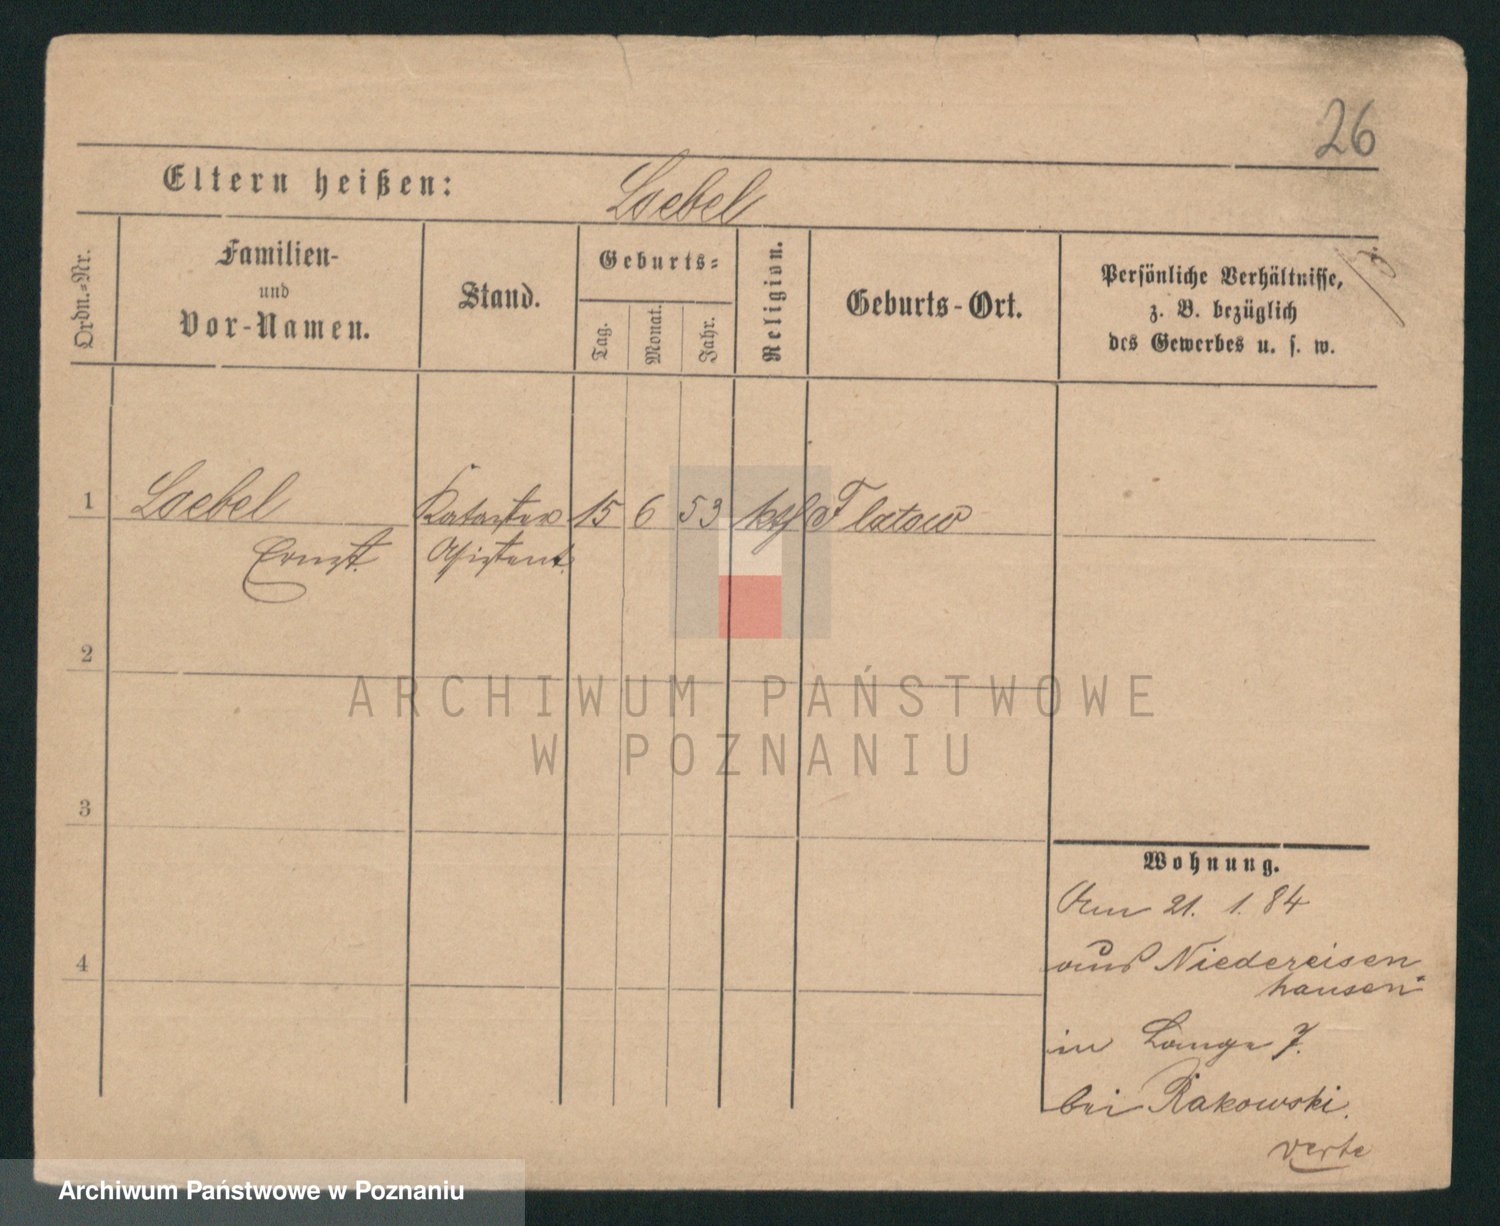 26
Eltern heißen: Loebel
Ordn.-Nr.
Familien-
und
Vor-Namen.
Stand.
Geburts-
Tag.
Monat.
Jahr.
Religion.
Geburts-Ort.
Persönliche Verhältnisse,
z. B. bezüglich
des Gewerbes u. s. w.
1 Loebel Kataster 15 6 53 kth Flatow
Ernst. Assistent.
2
3
4
Wohnung.
Am 21. 1. 84
aus Niedereisen
hausen
in Lange 7.
bei Rakowski.
verte
ARCHIWUM PAŃSTWOWE
W POZNANIU
Archiwum Państwowe w Poznaniu